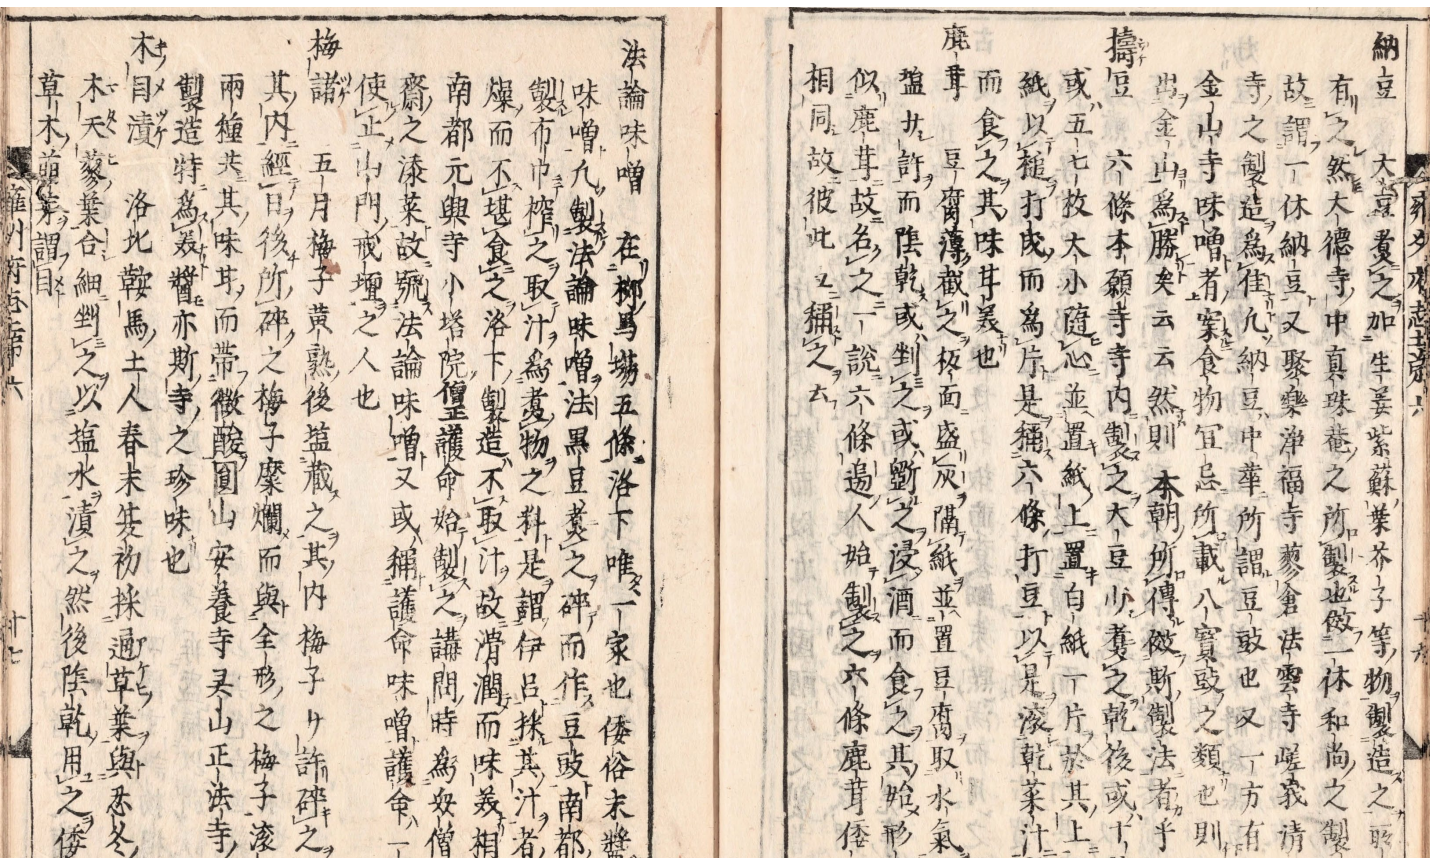 納豆 大豆煮之加生姜紫蘇葉芥子等物製造之所
有之然大德寺中真珠菴之所製也傚一休和尚之製
故謂一休納豆又聚樂淨福寺蓼倉法雲寺嵯峨清
寺之製造為佳凡納豆中華所謂豆豉也又一方有
金山寺味噌者案食物冝忌所載八寳豉之類也則
出金山為勝矣云云然則 本朝所傳傚斯製法者乎
擣豆 六條本願寺寺内製之大豆少煮之乾後或十
或五七枚大小隨心並置紙上置白紙一片於其上
紙以槌打成而為片是稱六條打豆以是滚乾菜汁
而食之其味甘美也
鹿茸 豆腐薄截之板面盛灰隔紙並置豆腐取水氣
塩少許而陰乾或剉之或斷之浸酒而食之其始形
似鹿茸故名之一説六條邉人始製之六條鹿茸倭
相同故彼此又稱之云
法論味噌 在柳馬場五條洛下唯一家也倭俗末醬
味噌凡製法論味噌法黒豆煮之碎而作豆豉南都
製布巾搾之取汁為煮物之料是謂伊呂採其汁者
燥而不堪食之洛下製造不取汁故滑潤而味美相
南都元興寺小塔院僧正護命始製之講問時為奴僧
齋之漆菜故號法論味噌又或稱護命味噌護命一
使止山門戒壇之人也
梅諸 五月梅子黄熟後塩藏之其内梅子少許碎之
其内經日後所碎之梅子糜爛而與全形之梅子滚
兩種共其味甘而帶微酸圓山安養寺灵山正法寺
製造特為美醬亦斯寺之珍味也
木目漬 洛北鞍馬土人春末夏初採通草葉與忍冬
木天蓼葉合細剉之以塩水漬之然後陰乾用之倭
草木萠芽謂目